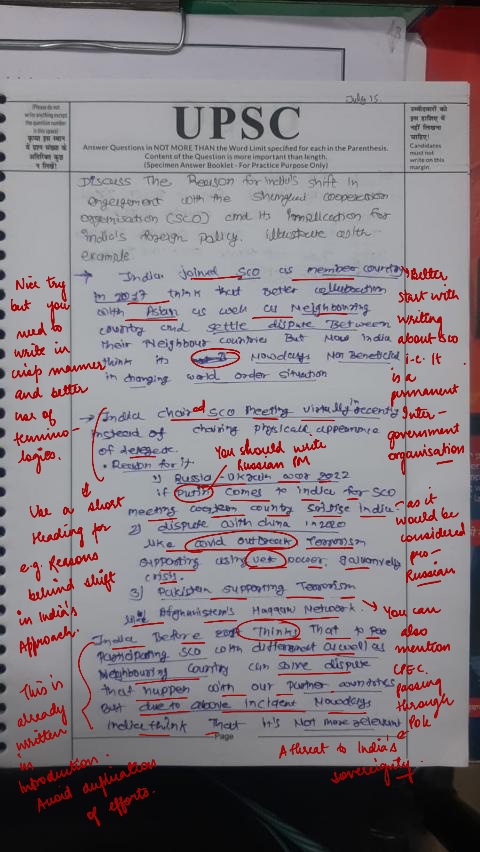 July 15.
(Please do not
write anything except
the question number
in this space)
कृपया इस स्थान
में प्रश्न संख्या के
अतिरिक्त कुछ
न लिखें
UPSC
उम्मीदवारों को
इस हाशिए में
नहीं लिखना
चाहिए।
Candidates
must not
write on this
margin.
Answer Questions in NOT MORE THAN the Word Limit specified for each in the Parenthesis.
Content of the Question is more important than length.
(Specimen Answer Booklet - For Practice Purpose Only)
Discuss The Reason for India's shift in
engergement with the Shanghai cooperation
organisation (SCO) and its Implication for
India's foreign policy. illustrate with
example.
→ India joined SCO as member country
in 2017 think that Better collubration
with Asian as well as Neighbouring
country and settle dispute Between
their Neighbour countries But Now india
think its Nowdays Not Beneficial
in changing world order situation
→ India chaired SCO meeting virtually in recently
instead of chairing physical appearence
of
• Reason for it
1) Russia - Ukrain war 2022
if Putin comes to india for SCO
meeting western country India
2) dispute with china in 2020
like covid outbreak Terrorism
supporting using veto power, galwanvely
crisis.
3) Pakistan supporting Terrorism
Afghanistan's Haqqani Network
India Before Thinks That to
Participating SCO with different as well as
Neighbouring Country can solve dispute
that happen with our Partner countries
But due to above incident Nowdays
India think That it's Not more relevent
Page
Nice try
but you
need to
write in
crisp manner
and better
use of
termino-
logies.
Better
start with
writing
about SCO
i.e. It
is a
permanent
Inter-
government
organisation
You should write
Russian PM
Use a short
Heading for
e.g. Reasons
behind shift
in India's
Approach.
- as it
would be
considered
pro-
Russian
→ You can
also
mention
CPEC
passing
through
PoK
A threat to India's
sovereignty.
This is
already
written
in
Introduction.
Avoid duplication
of efforts.